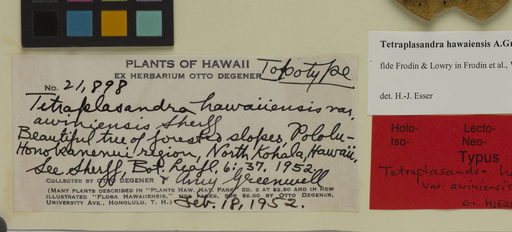 PLANTS OF HAWAII
EX HERBARIUM OTTO DEGENER
Topotype
No. 21,898
Tetraplasandra hawaiiensis var.
awiniensis Sherff
Beautiful tree of forested slopes, Pololu-
Honokanenui region, North Kohala, Hawaii,
See Sherff, Bot. Leafl. 6: 37. 1952.
COLLECTED BY OTTO DEGENER & Amy Greenwell
(MANY PLANTS DESCRIBED IN "PLANTS HAW. NAT. PARK" ED. 2 AT $2.50 AND IN NEW
ILLUSTRATED "FLORA HAWAIIENSIS," PAGES, $6.00 BY OTTO DEGENER,
UNIVERSITY AVE., HONOLULU, T. H.) Feb. 18, 1952.
Tetraplasandra hawaiensis A.Gr
fide Frodin & Lowry in Frodin et al.,
det. H.-J. Esser
Holo- Lecto-
Iso- Neo-
Typus
Tetraplasandra ha
var. awiniensis